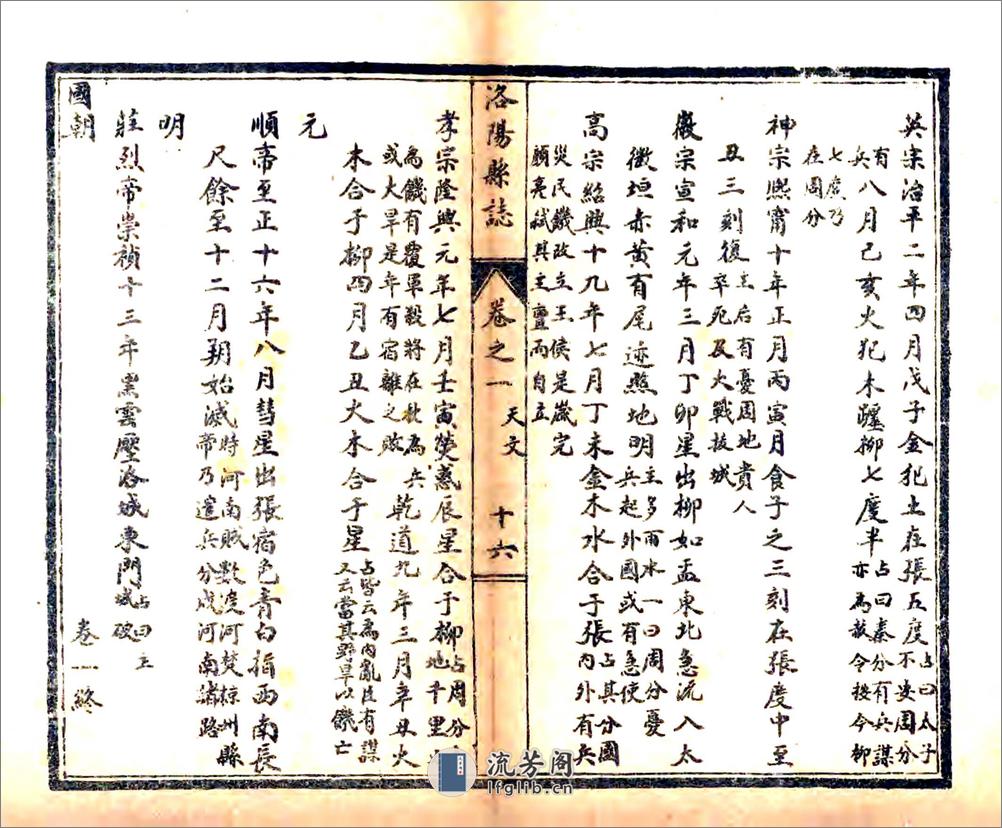 英宗治平二年四月戊子金犯土在張五度占曰太子不安周分
有兵八月己亥火犯木躔柳七度半占曰秦分有兵謀亦為赦令後今柳
七度乃在周分
神宗熙甯十年正月丙寅月食子之三刻在張度中至
丑三刻復主后有憂周地貴人卒死及火戰拔城
徽宗宣和元年三月丁卯星出柳如盂東北急流入太
微垣赤黃有尾迹照地明主多雨水一曰周分憂兵起外國或有急使
高宗紹興十九年七月丁未金木水合于張占其分國內外有兵
災民饑改立王侯是歲完顏亮弒其主亶而自立
洛陽縣誌 卷之一 天文 十六
孝宗隆興元年七月壬寅熒惑辰星合于柳占周分地千里
為饑有覆軍殺將在秋為兵或大旱是年有宿離之敗乾道九年三月辛丑火
木合于柳四月乙丑火木合于星占皆云為內亂臣有謀又云當其野旱以饑亡
元
順帝至正十六年八月彗星出張宿色青白指西南長
尺餘至十二月朔始滅時河南賊數渡河焚掠州縣帝乃遣兵分戍河南諸路
明
莊烈帝崇禎十三年黑雲壓洛城東門占曰主城破
國朝
卷一終
流芳阁
lfglib.cn